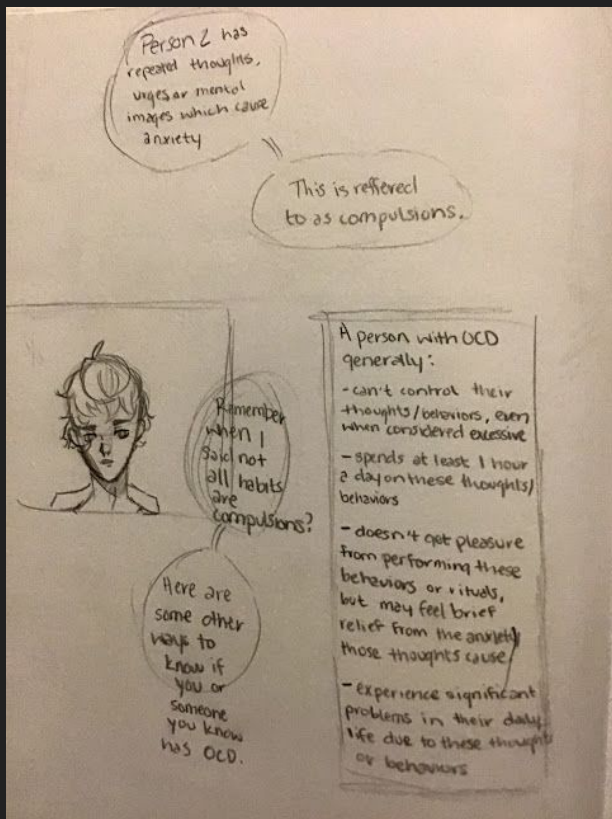 Person 2 has
repeated thoughts,
urges or mental
images which cause
anxiety
This is reffered
to as compulsions.
Remember
when I
said not
all habits
are
compulsions?
Here are
some other
ways to
know if
you or
someone
you know
has OCD.
A person with OCD
generally:
- can't control their
thoughts/behaviors, even
when considered excessive
- spends at least 1 hour
a day on these thoughts/
behaviors
- doesn't get pleasure
from performing these
behaviors or rituals,
but may feel brief
relief from the anxiety
those thoughts cause
- experience significant
problems in their daily
life due to these thoughts
or behaviors